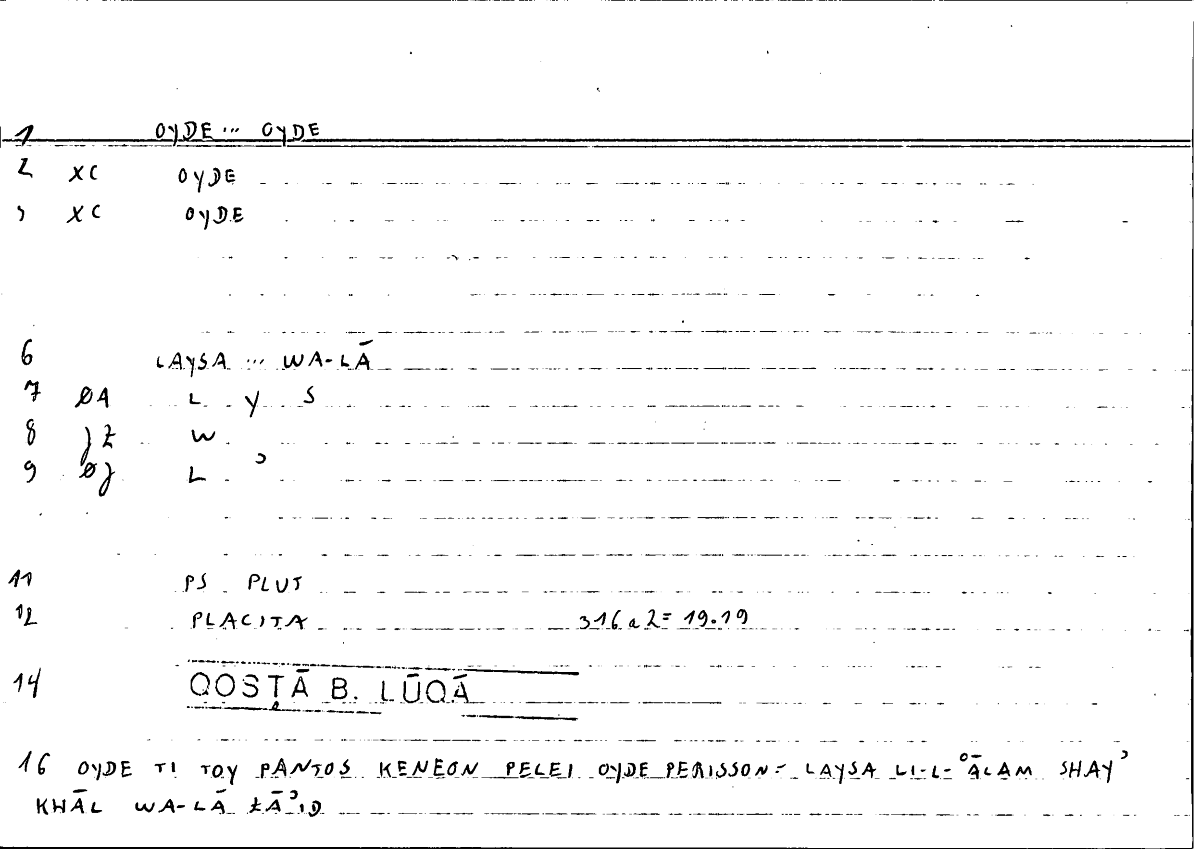 1 OYDE ... OYDE
2 XC OYDE
3 XC OYDE
6 LAYSA ... WA-LĀ
7 ØA L Y S
8 JZ W
9 ØJ L ʾ
11 PS PLUT
12 PLACITA 316a2= 19.19
14 QOSṬĀ B. LŪQĀ
16 OYDE TI TOY PANTOS KENEON PELEI OYDE PERISSON= LAYSA LI-L-ʿĀLAM SHAYʾ
KHĀL WA-LĀ ZĀʾID